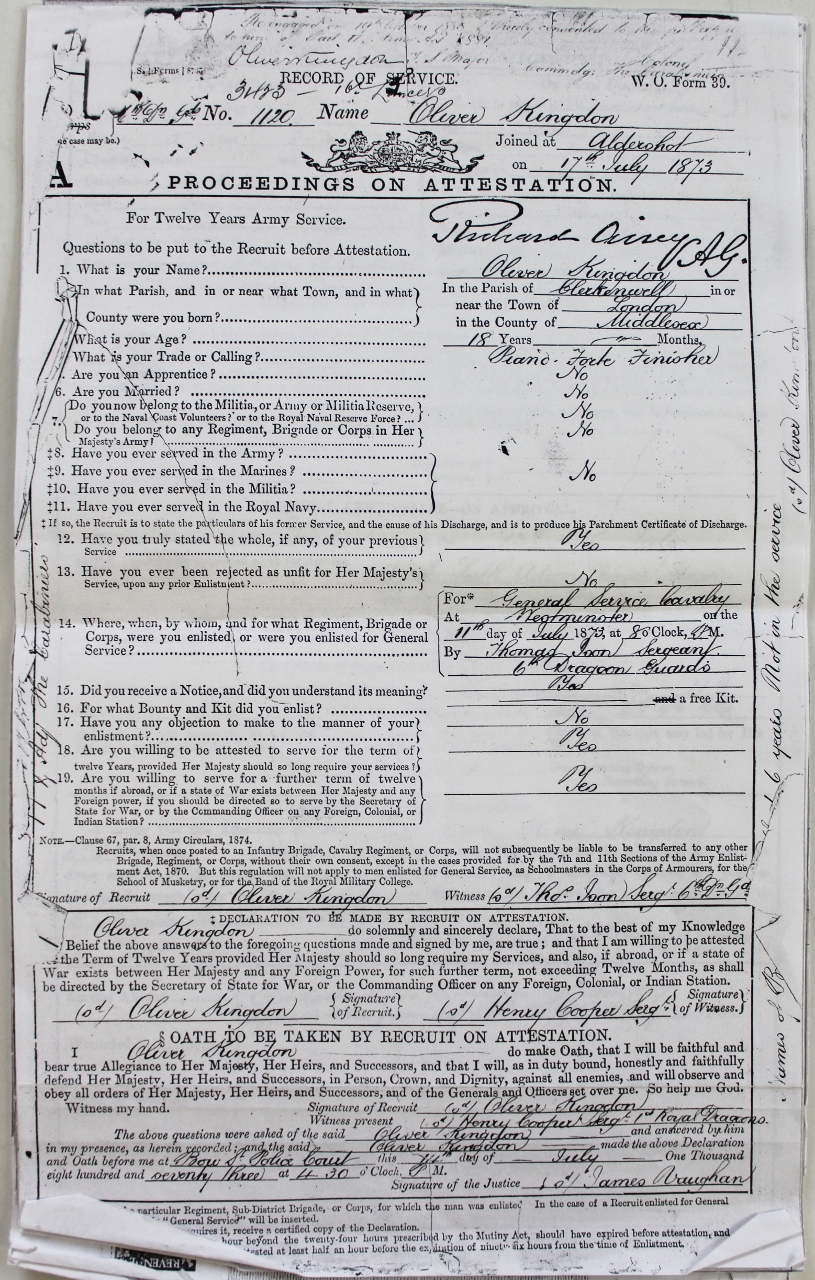 Oliver Kingdon
Major
Colony
S. Forms
RECORD OF SERVICE.
W. O. Form 39.
3473 — 16th Lancers
No. 1120 Name Oliver Kingdon
(e case may be.)
Joined at Aldershot
on 17th July 1873
A
PROCEEDINGS ON ATTESTATION.
For Twelve Years Army Service.
Richard Airey AG.
Questions to be put to the Recruit before Attestation.
1. What is your Name? Oliver Kingdon
In what Parish, and in or near what Town, and in what County were you born?
In the Parish of Clerkenwell in or
near the Town of London
in the County of Middlesex
What is your Age? 18 Years — Months.
What is your Trade or Calling? Piano-Forte Finisher
Are you an Apprentice? No
6. Are you Married? No
7. Do you now belong to the Militia, or Army or Militia Reserve, No
or to the Naval Coast Volunteers? or to the Royal Naval Reserve Force?
Do you belong to any Regiment, Brigade or Corps in Her No
Majesty's Army?
‡8. Have you ever served in the Army?
‡9. Have you ever served in the Marines? No
‡10. Have you ever served in the Militia?
‡11. Have you ever served in the Royal Navy
‡ If so, the Recruit is to state the particulars of his former Service, and the cause of his Discharge, and is to produce his Parchment Certificate of Discharge.
12. Have you truly stated the whole, if any, of your previous Yes
Service
13. Have you ever been rejected as unfit for Her Majesty's
Service, upon any prior Enlistment? No
14. Where, when, by whom, and for what Regiment, Brigade or
Corps, were you enlisted, or were you enlisted for General
Service?
For* General Service Cavalry
At Westminster on the
11th day of July 1873, at 8 o'Clock, M.
By Thomas Ison Sergeant
6th Dragoon Guards
15. Did you receive a Notice, and did you understand its meaning? Yes
16. For what Bounty and Kit did you enlist? and a free Kit.
17. Have you any objection to make to the manner of your No
enlistment?
18. Are you willing to be attested to serve for the term of Yes
twelve Years, provided Her Majesty should so long require your services?
19. Are you willing to serve for a further term of twelve Yes
months if abroad, or if a state of War exists between Her Majesty and any
Foreign power, if you should be directed so to serve by the Secretary of
State for War, or by the Commanding Officer on any Foreign, Colonial, or
Indian Station?
NOTE.—Clause 67, par. 8, Army Circulars, 1874.
Recruits, when once posted to an Infantry Brigade, Cavalry Regiment, or Corps, will not subsequently be liable to be transferred to any other
Brigade, Regiment, or Corps, without their own consent, except in the cases provided for by the 7th and 11th Sections of the Army Enlist-
ment Act, 1870. But this regulation will not apply to men enlisted for General Service, as Schoolmasters in the Corps of Armourers, for the
School of Musketry, or for the Band of the Royal Military College.
Signature of Recruit (sd) Oliver Kingdon Witness (sd) Thos. Ison Sergt. 6th Dn Gds
‡ DECLARATION TO BE MADE BY RECRUIT ON ATTESTATION.
Oliver Kingdon do solemnly and sincerely declare, That to the best of my Knowledge
Belief the above answers to the foregoing questions made and signed by me, are true; and that I am willing to be attested
the Term of Twelve Years provided Her Majesty should so long require my Services, and also, if abroad, or if a state of
War exists between Her Majesty and any Foreign Power, for such further term, not exceeding Twelve Months, as shall
be directed by the Secretary of State for War, or the Commanding Officer on any Foreign, Colonial, or Indian Station.
(sd) Oliver Kingdon Signature of Recruit. (sd) Henry Cooper Sergt. Signature of Witness.
§ OATH TO BE TAKEN BY RECRUIT ON ATTESTATION.
I Oliver Kingdon do make Oath, that I will be faithful and
bear true Allegiance to Her Majesty, Her Heirs, and Successors, and that I will, as in duty bound, honestly and faithfully
defend Her Majesty, Her Heirs, and Successors, in Person, Crown, and Dignity, against all enemies, and will observe and
obey all orders of Her Majesty, Her Heirs, and Successors, and of the Generals and Officers set over me. So help me God.
Witness my hand. Signature of Recruit (sd) Oliver Kingdon
Witness present (sd) Henry Cooper Sergt. 1st Royal Dragoons.
The above questions were asked of the said Oliver Kingdon and answered by him
in my presence, as herein recorded; and the said Oliver Kingdon made the above Declaration
and Oath before me at Bow St. Police Court this day of July One Thousand
eight hundred and seventy three at 4 30 o'Clock, P M.
Signature of the Justice (sd) James Vaughan
a particular Regiment, Sub-District Brigade, or Corps, for which the man was enlisted In the case of a Recruit enlisted for General
"General Service" will be inserted.
quires it, receive a certified copy of the Declaration.
hour beyond the twenty-four hours prescribed by the Mutiny Act, should have expired before attestation, and
tested at least half an hour before the expiration of ninety-six hours from the time of Enlistment.
6 years Not in the service
(sd) Oliver Kingdon
Adjt The Carabiniers
James